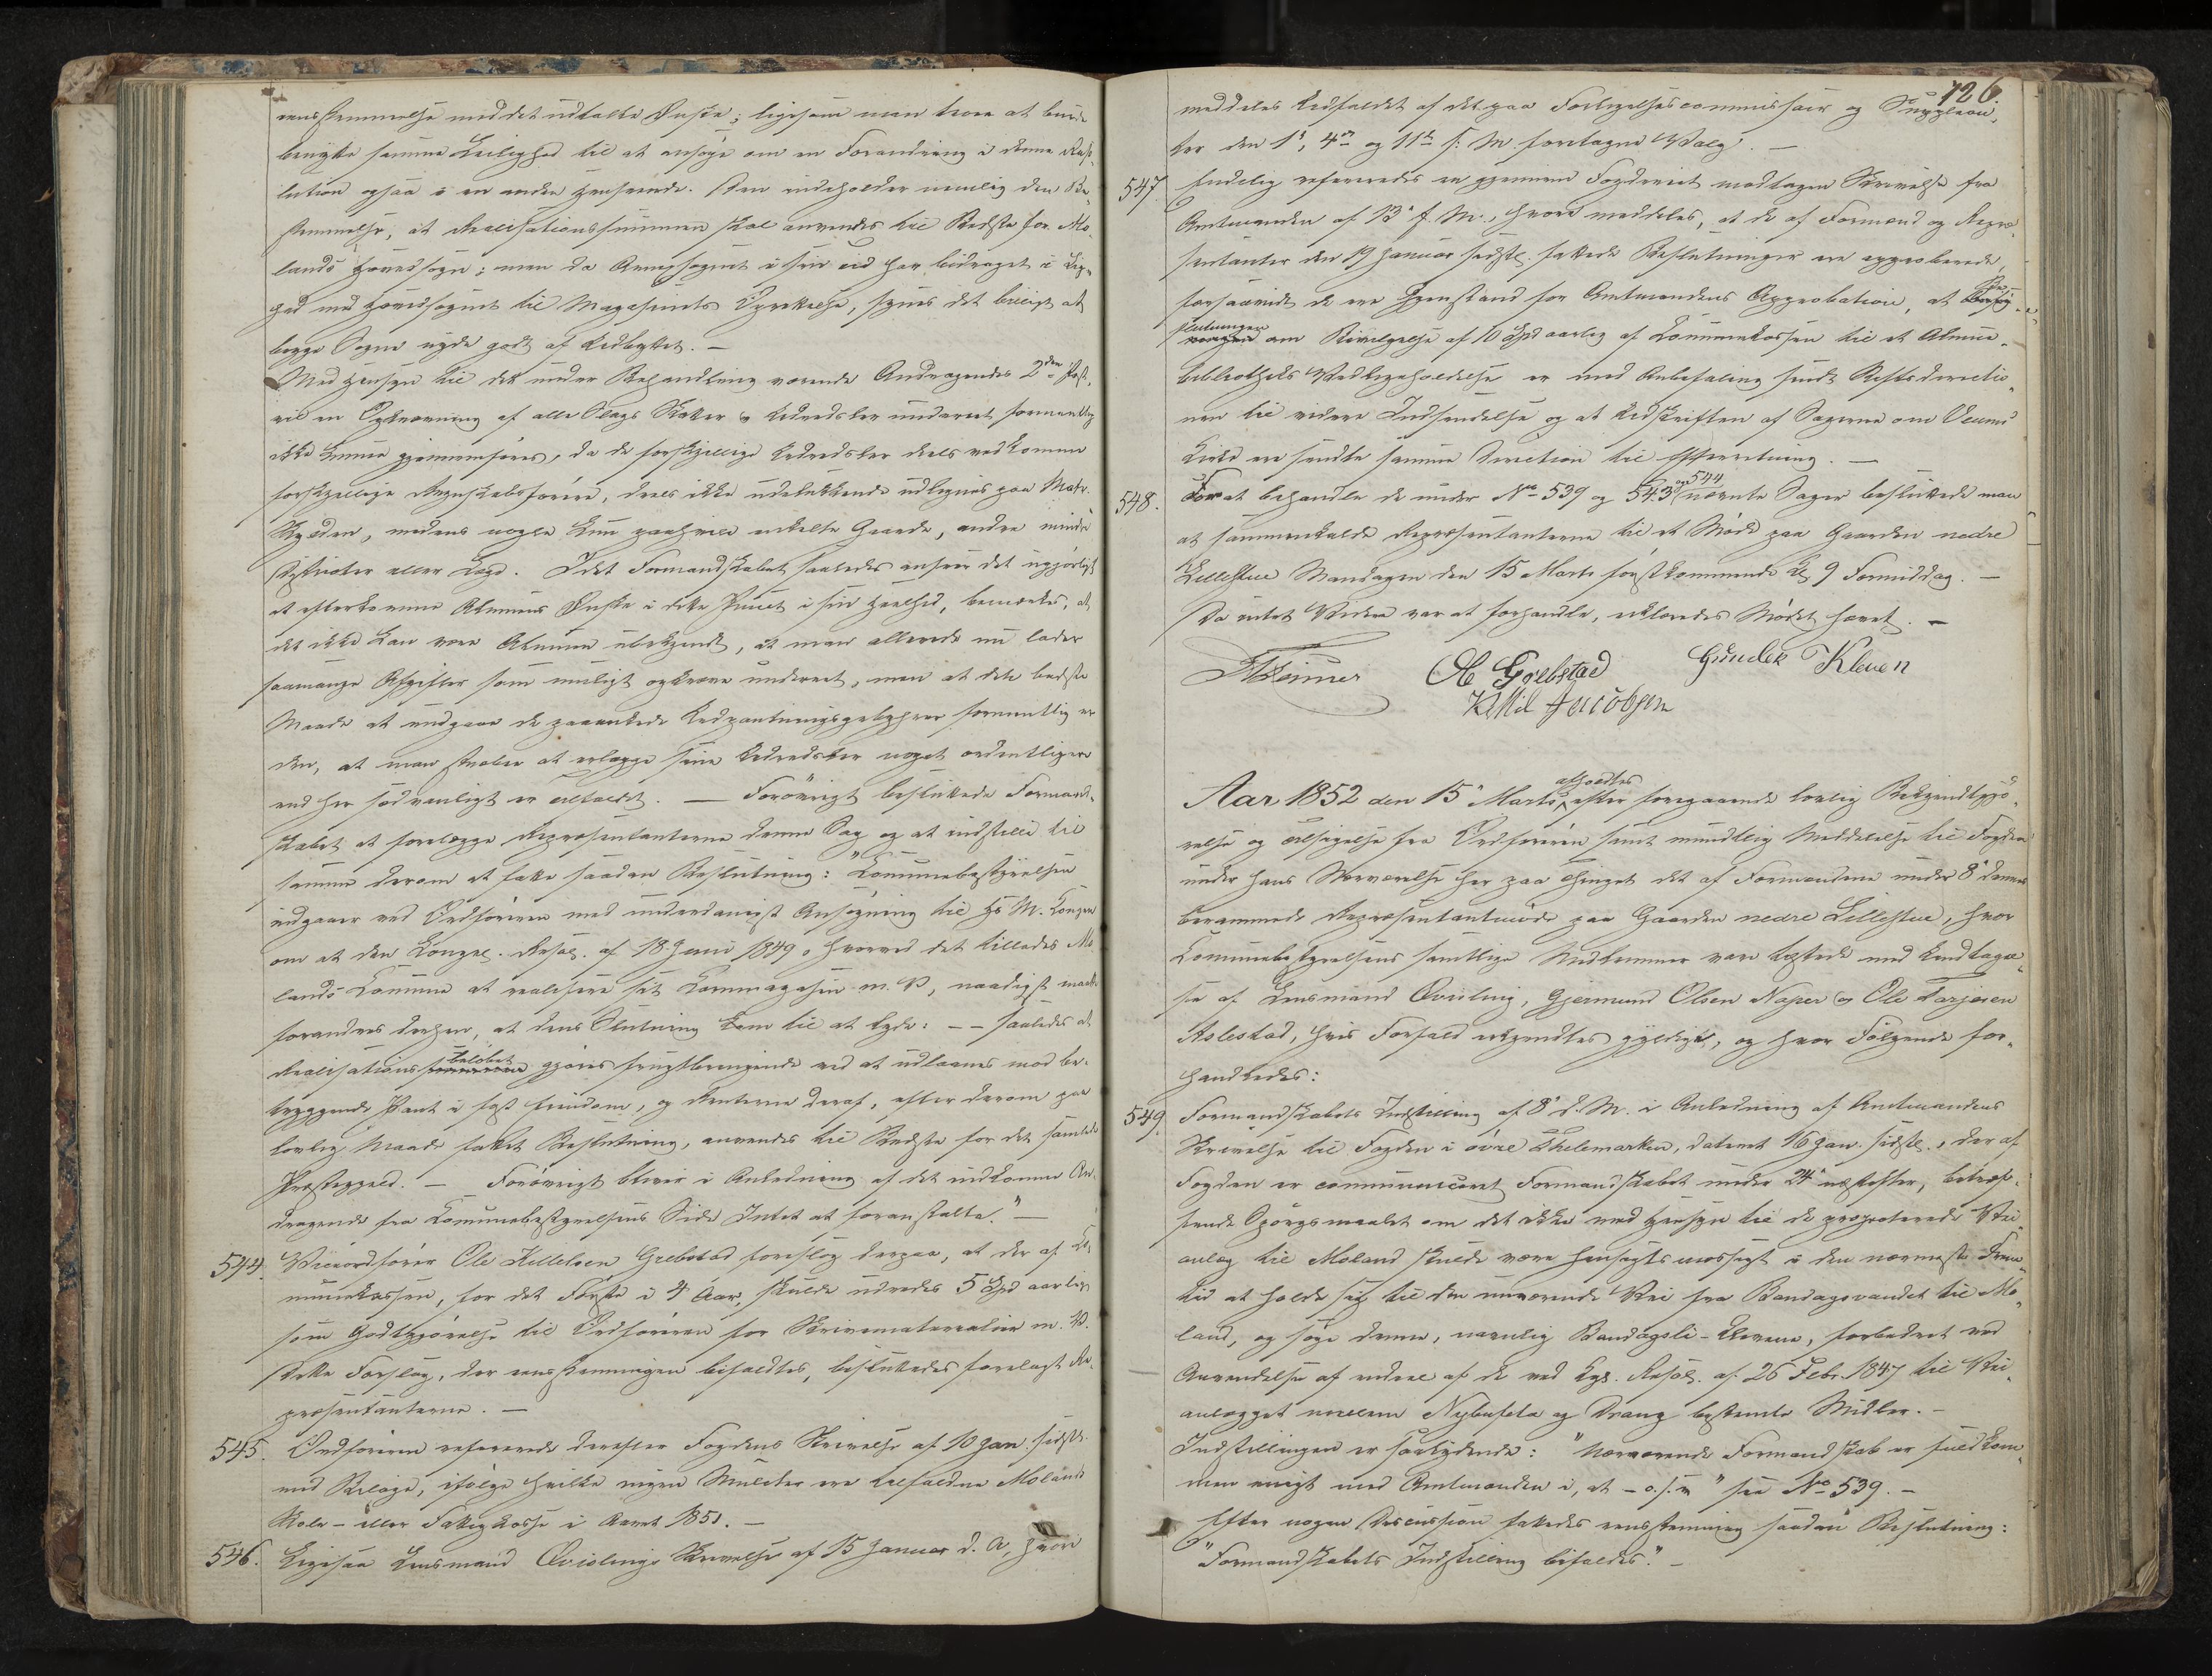 eensstemmelse med det udtalte Ønske; ligesom man troer at burde
benytte samme Leilighed til at ansøge om en Forandring i denne Reso-
lution ogsaa i en anden Henseende. Den indeholder nemlig den Be-
stemmelse, at Realisationssummen skal anvendes til Bedste for Mo-
lands Hovedsogn; men da Annexsognet i sin Tid har bidraget i Lig-
hed med Hovedsognet til Magasinets Oprettelse, synes det billigt at
begge Sogne nyde godt af Udbyttet. –
Med Hensyn til det under Behandling værende Andragendes 2den Post,
vil en Opkrævning af alle Slags Skatter & Udredsler underet formentlig
ikke kunne gjennemføres, da de forskjellige Udredsler deels vedkomme
forskjellige Regnskabsførere, deels ikke udelukkende udlignes paa Matr.
Skylden, medens nogle kun paahvile enkelte Gaarde, andre mindre
Districter eller Lægd. Idet Formandskabet saaledes anseer det ugjørligt
at efterkomme Almuens Ønske i dette Punct i sin Heelhed, bemærkes, at
det ikke kan være Almuen ubekjendt, at man allerede nu lader
saamange Afgifter som muligt opkræve underet, men at den bedste
Maade at undgaae de paaankede Udpantningsgebyhrer formentlig er
den, at man stræber at erlægge sine Udredsler noget ordentligere
end her sædvanligt er Tilfældet. — Forøvrigt besluttede Formand-
skabet at forelægge Repræsentanterne denne Sag og at indstille til
samme derom at fatte saadan Beslutning: "Communebestyrelsen
indgaaer ved Ordføreren med underdanigst Ansøgning til Hs M. Kongen
om at den Kongel. Resol. af 18 Juni 1849, hvorved det tillades Mo-
lands Commune at realisere sit Kornmagasin m. V., naadigst maatte
forandres derhen, at dens Slutning kom til at lyde: – – saaledes at
Realisationsbeløbet gjøres frugtbringende ved at udlaanes mod be-
tryggende Pant i fast Eiendom, og Renterne deraf, efter derom paa
lovlig Maade fattet Beslutning, anvendes til Bedste for det samlede
Præstegjeld. – Forøvrigt bliver i Anledning af det indkomne An-
dragende fra Communebestyrelsens Side Intet at foranstalte." –
544. Viceordfører Ole Killelsen Grebstad foreslog derpaa, at der af Co-
munekassen, for det Første i 4 Aar, skulde udredes 5 Spd aarlig
som Godtgjørelse til Ordføreren for Skrivematerialier m. V.
Dette Forslag, der eensstemmigen bifaldtes, besluttedes forelagt Re-
præsentanterne. –
545. Ordføreren refererede derefter Fogdens Skrivelse af 10 Jan. sidstl.
med Bilage, ifølge hvilke ingen Mulcter ere tilfaldne Molands
Skole- eller Fattigkasse i Aaret 1851. –
546. Ligesaa Lensmand Qvislings Skrivelse af 15 Januar d. A, hvori
126.
meddeles Udfaldet af det paa Forligelsescommissair og Supplean-
ter den 1ste, 4de og 11te f. M. foretagne Valg. –
547 Endelig refereredes en gjennem Fogderiet modtagen Skrivelse fra
Amtmanden af 13de f. M., hvori meddeles, at de af Formænd og Repræ-
sentanter den 19 Januar sidstl. fattede Beslutninger ere approberede,
forsaavidt de ere Gjenstand for Amtmandens Approbation, at Be-
slutningen om Bevilgelse af 10 Spd aarlig af Communekassen til et Almue-
bibliotheks Vedligeholdelse er med Anbefaling sendt Stiftsdirectio-
nen til videre Indsendelse og at Udskriften af Sagerne om Veums
Kirke ere sendte samme Direction til Efterretning. –
548. For at behandle de under No 539 og 543 og 544 nævnte Sager besluttede man
at sammenkalde Repræsentanterne til et Møde paa Gaarden nedre
Lillestue Mandagen den 15 Marts førstkommende Kl. 9 Formiddag. –
Da intet Videre var at forhandle, erklæredes Mødet hævet. –
Ole Grebstad Gunder Kleven
Killil Jacobsen
Aar 1852 den 15de Marts afholdtes efter foregaaende lovlig Bekjendtgjø-
relse og Tilsigelse fra Ordføreren samt mundtlig Meddelelse til Fogden
under hans Nærværelse her paa Thinget det af Formændene under 8de dennes
berammede Repræsentantmøde paa Gaarden nedre Lillestue, hvor
Communebestyrelsens samtlige Medlemmer vare tilstede med Undtagel-
se af Lensmand Qvisling, Gjermund Olsen Naper og Ole Tarjeisen
Aslestad, hvis Forfald erkjendtes gyldigt, og hvor Følgende for-
handledes:
549. Formandskabets Indstilling af 8de d. M. i Anledning af Amtmandens
Skrivelse til Fogden i øvre Thelemarken, dateret 16 Jan. sidstl., der af
Fogden er communiceret Formandskabet under 24de næstefter, betræf-
fende Spørgsmaalet om det ikke med Hensyn til de projecterede Vei-
anlæg til Moland skulde være hensigtsmæssigt i den nærmeste Frem-
tid at holde sig til den nuværende Vei fra Bandagsvandet til Mo-
land, og søge denne, navnlig Bandagsli-Kleven, forbedret ved
Anvendelse af endeel af de ved Kgl. Resol. af 26 Febr. 1847 til Vei-
anlægget mellem Nybufeta og Drang bestemte Midler. –
Indstillingen er saalydende: "Nærværende Formandskab er fuldkom-
men enigt med Amtmanden i, at – o.s.v." see No 539. –
Efter nogen Discussion fattedes eensstemmig saadan Beslutning:
"Formandskabets Indstilling bifaldes." –